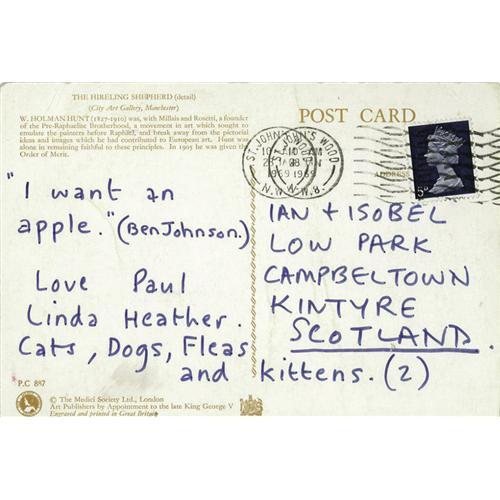 THE HIRELING SHEPHERD (detail)
(City Art Gallery, Manchester)
W. HOLMAN HUNT (1827-1910) was, with Millais and Rosetti, a founder
of the Pre-Raphaelite Brotherhood, a movement in art which sought to
emulate the painters before Raphael, and break away from the pictorial
ideas and images which he had contributed to European art. Hunt was
alone in remaining faithful to these principles. In 1905 he was given the
Order of Merit.
POST CARD
ST. JOHN'S WOOD
1969
N.W.8.
ADDRESS
5D
"I want an
apple." (Ben Johnson.)
Love Paul
Linda Heather.
Cats, Dogs, Fleas
and kittens. (2)
IAN + ISOBEL
LOW PARK
CAMPBELTOWN
KINTYRE
SCOTLAND.
P.C 887
© The Medici Society Ltd., London
Art Publishers by Appointment to the late King George V
Engraved and printed in Great Britain